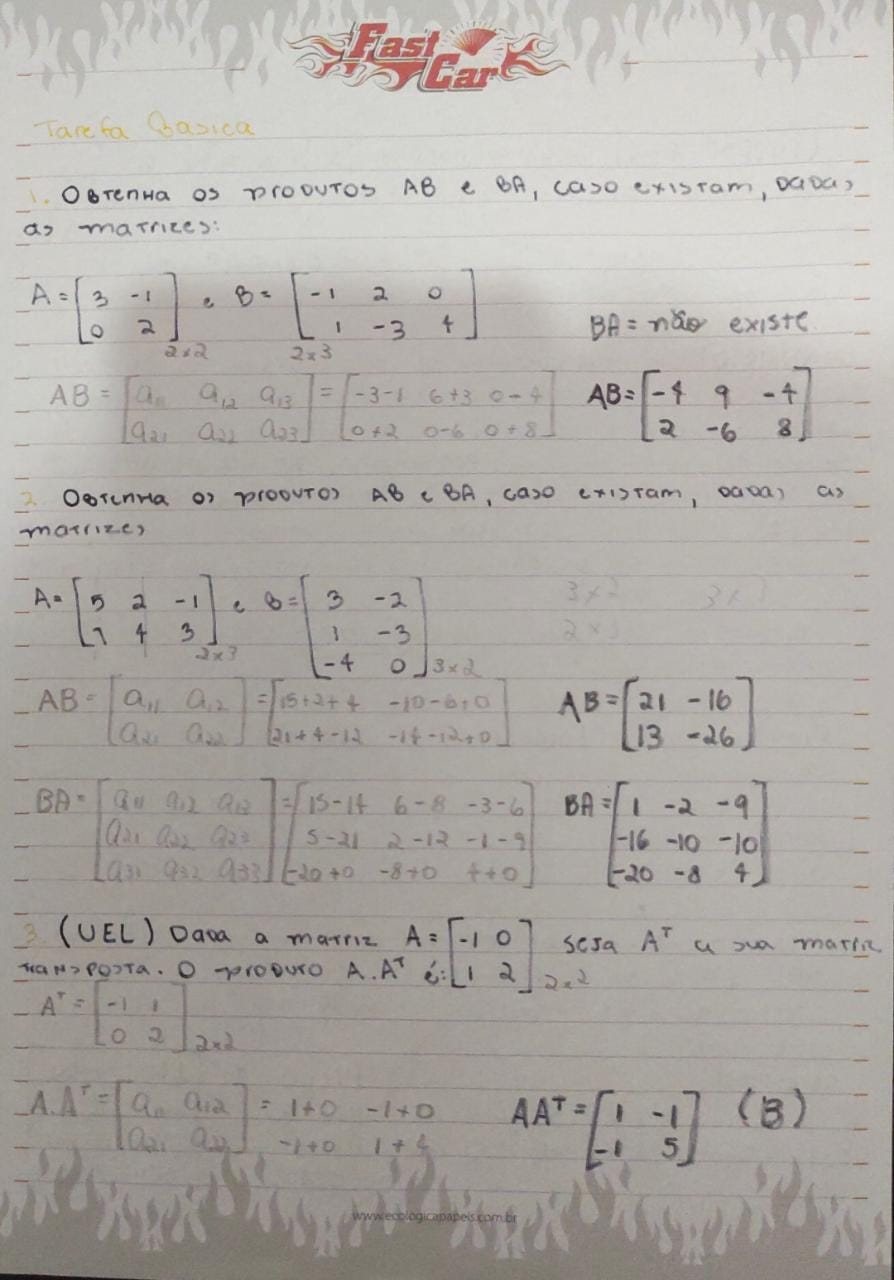 Fast
Car
Tarefa Basica
1. Obtenha os produtos AB e BA, caso existam, dadas
as matrizes:
A = [3 -1; 0 2] 2x2 e B = [-1 2 0; 1 -3 4] 2x3
BA = não existe
AB = [a11 a12 a13; a21 a22 a23] = [-3-1 6+3 0-4; 0+2 0-6 0+8] AB = [-4 9 -4; 2 -6 8]
2. Obtenha os produtos AB e BA, caso existam, dadas as
matrizes
A = [5 2 -1; 7 4 3] 2x3 e B = [3 -2; 1 -3; -4 0] 3x2
AB = [a11 a12; a21 a22] = [15+2+4 -10-6+0; 21+4-12 -14-12+0] AB = [21 -16; 13 -26]
BA = [a11 a12 a13; a21 a22 a23; a31 a32 a33] = [15-14 6-8 -3-6; 5-21 2-12 -1-9; -20+0 -8+0 4+0] BA = [1 -2 -9; -16 -10 -10; -20 -8 4]
3. (UEL) Dada a matriz A = [-1 0; 1 2] 2x2 seja Aᵀ a sua matriz
transposta. O produto A.Aᵀ é:
Aᵀ = [-1 1; 0 2] 2x2
A.Aᵀ = [a11 a12; a21 a22] = 1+0 -1+0; -1+0 1+4 AAᵀ = [1 -1; -1 5] (B)
www.ecologicapapeis.com.br